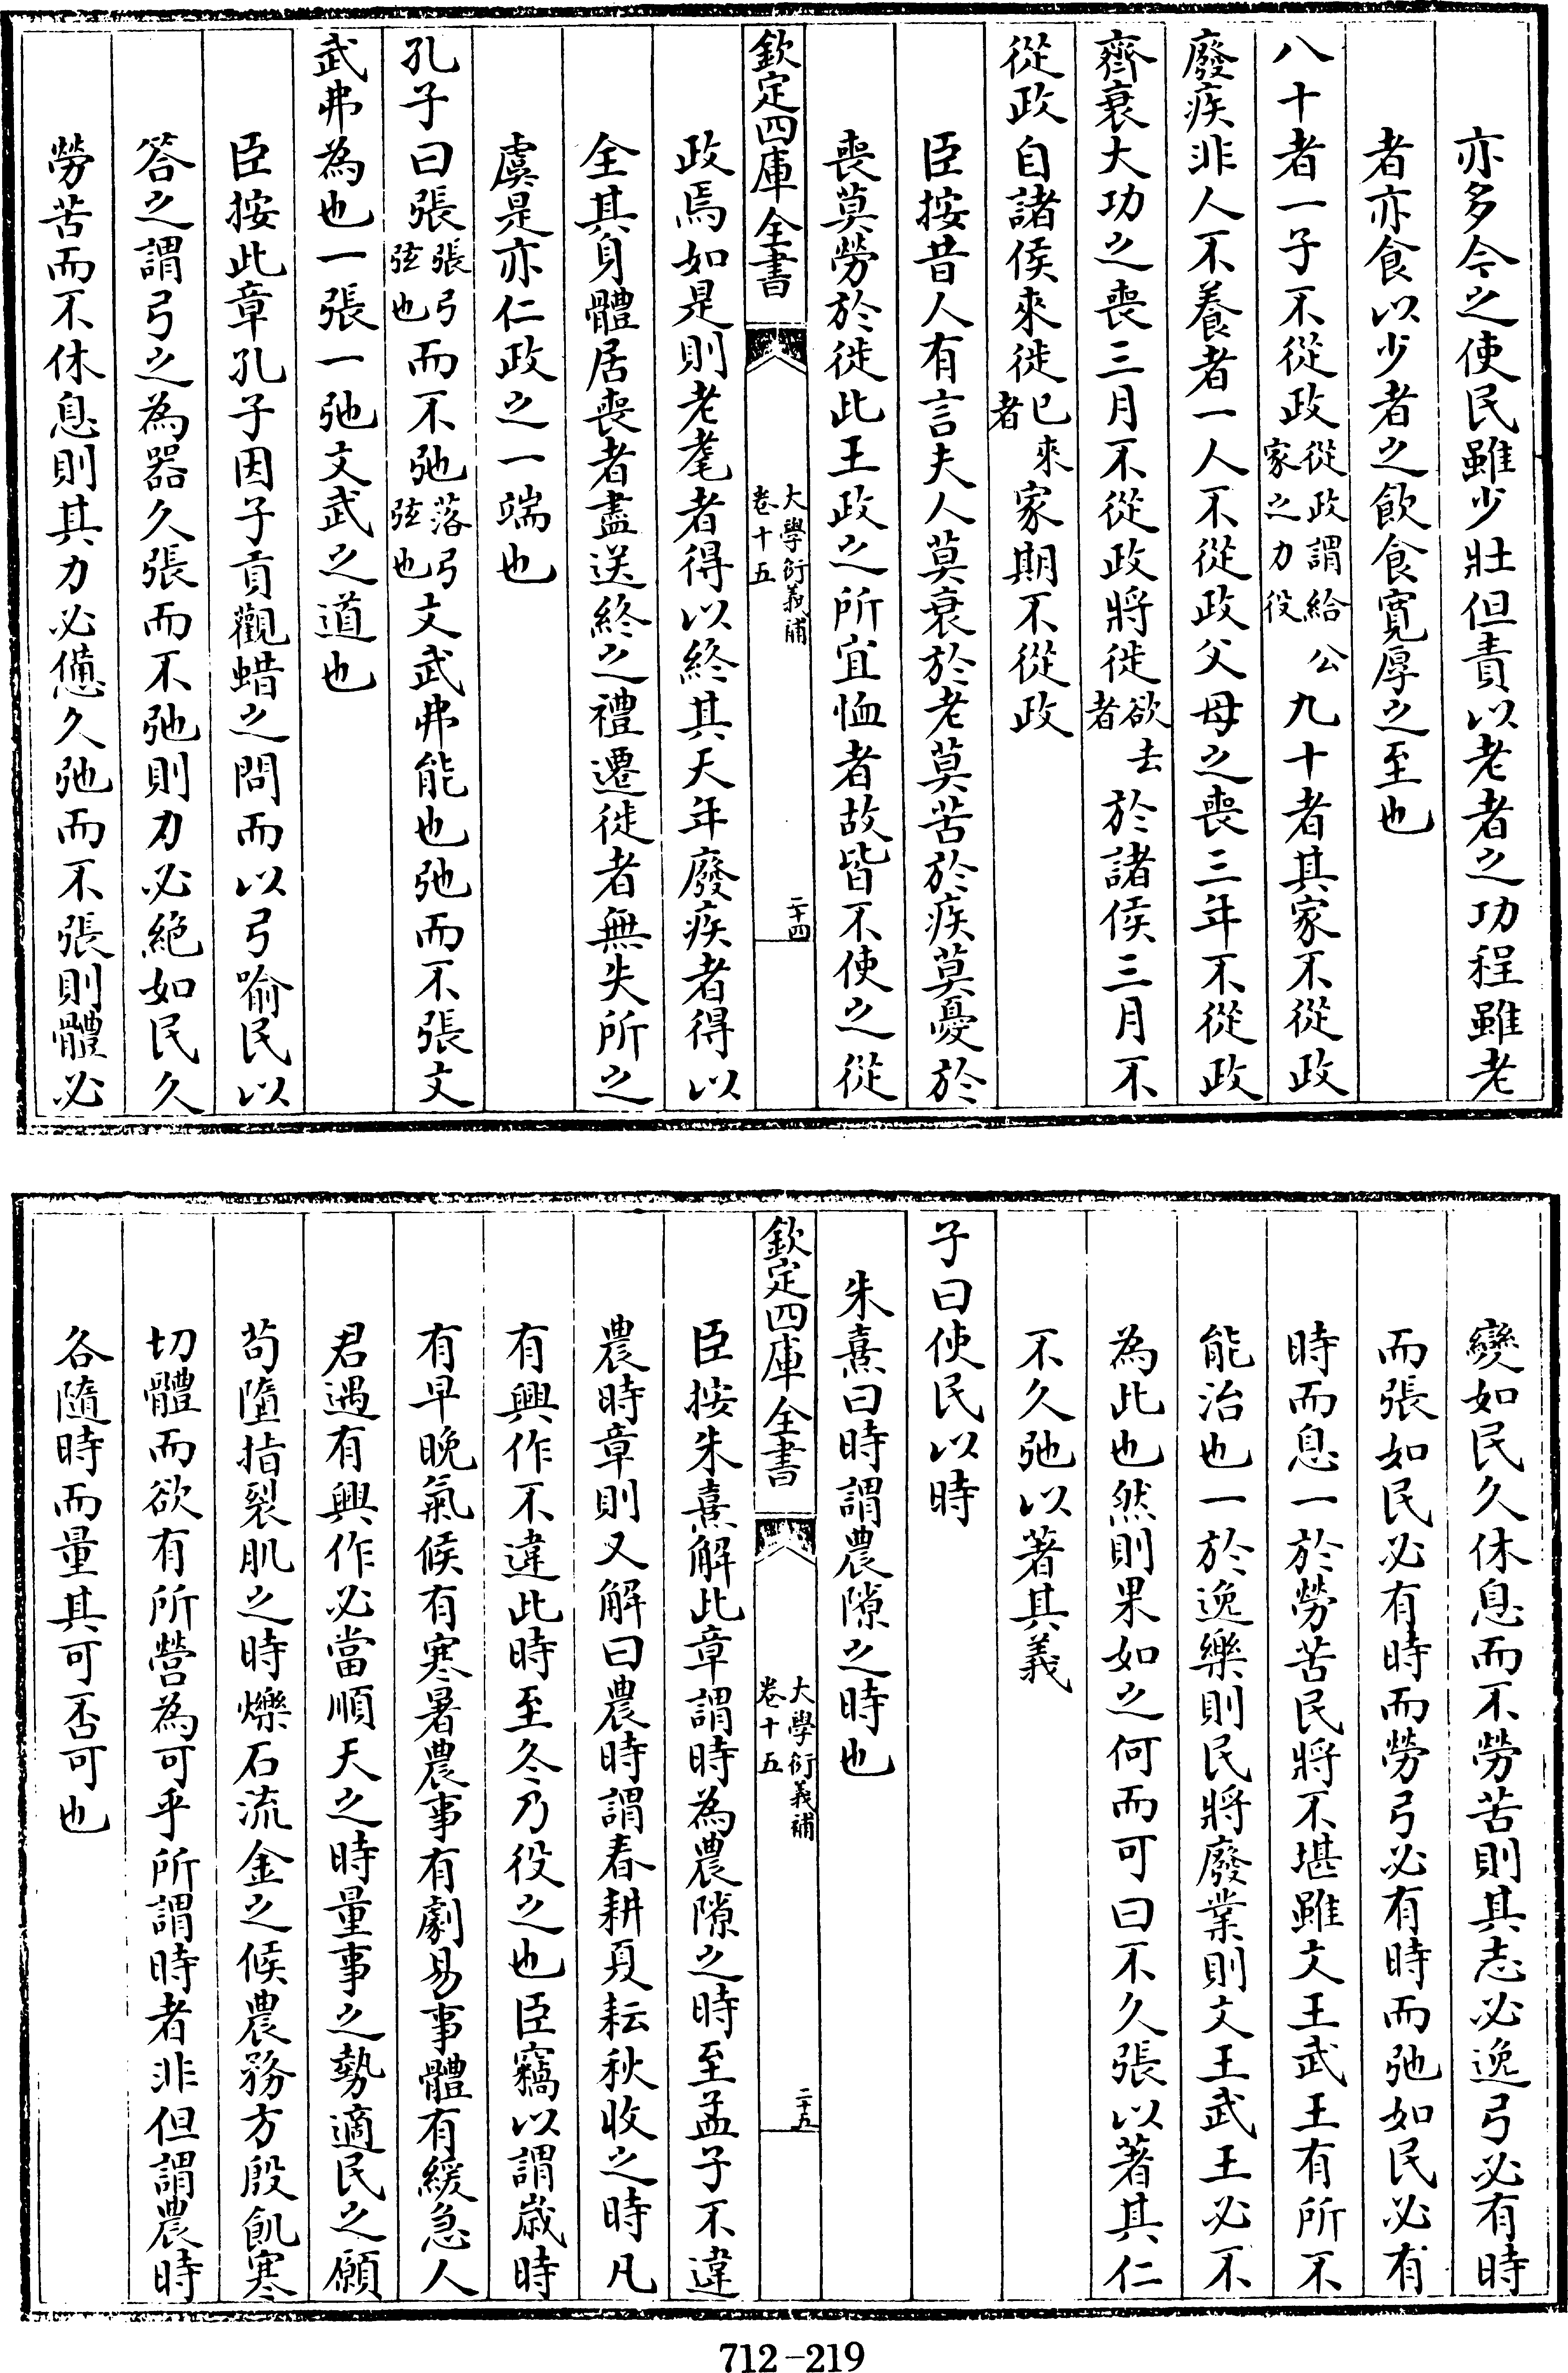 亦多今之使民雖少壯但責以老者之功程雖老
者亦食以少者之飲食寛厚之至也
八十者一子不從政從政謂給公家之力役九十者其家不從政
廢疾非人不養者一人不從政父母之喪三年不從政
齊衰大功之喪三月不從政將徙欲去者於諸侯三月不
從政自諸侯來徙已來者家期不從政
臣按昔人有言夫人莫衰於老莫苦於疾莫憂於
喪莫勞於徙此王政之所宜恤者故皆不使之從
欽定四庫全書
大學衍義補
卷十五
二十四
政焉如是則老耄者得以終其天年廢疾者得以
全其身體居喪者盡送終之禮遷徙者無失所之
虞是亦仁政之一端也
孔子曰張張弓弦也而不弛落弓弦也文武弗能也弛而不張文
武弗為也一張一弛文武之道也
臣按此章孔子因子貢觀蜡之問而以弓喻民以
答之謂弓之為器久張而不弛則力必絶如民久
勞苦而不休息則其力必憊久弛而不張則體必
變如民久休息而不勞苦則其志必逸弓必有時
而張如民必有時而勞弓必有時而弛如民必有
時而息一於勞苦民將不堪雖文王武王有所不
能治也一於逸樂則民將廢業則文王武王必不
為此也然則果如之何而可曰不久張以著其仁
不久弛以著其義
子曰使民以時
朱熹曰時謂農隙之時也
欽定四庫全書
大學衍義補
卷十五
二十五
臣按朱熹解此章謂時為農隙之時至孟子不違
農時章則又解曰農時謂春耕夏耘秋收之時凡
有興作不違此時至冬乃役之也臣竊以謂歲時
有早晚氣候有寒暑農事有劇易事體有緩急人
君遇有興作必當順天之時量事之勢適民之願
苟墮指裂肌之時爍石流金之候農務方殷飢寒
切體而欲有所營為可乎所謂時者非但謂農時
各隨時而量其可否可也
712-219